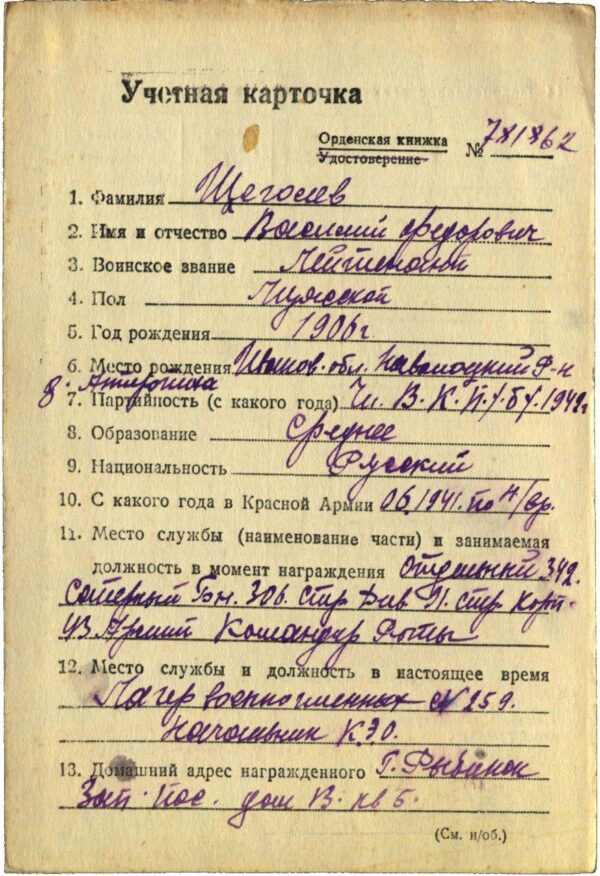 Учетная карточка
Орденская книжка
Удостоверение № 781862
1. Фамилия Щеголев
2. Имя и отчество Василий Федорович
3. Воинское звание Лейтенант
4. Пол Мужской
5. Год рождения 1906 г
6. Место рождения Иванов. обл. р-н
д.
7. Партийность (с какого года) Чл. В.К.П./б/. 1942 г
8. Образование Среднее
9. Национальность Русский
10. С какого года в Красной Армии 06.1941. по н/вр.
11. Место службы (наименование части) и занимаемая
должность в момент награждения Отдельный 342.
Саперный Бн. 306. стр Див 91. стр Корп.
43 Армии Командир Роты
12. Место службы и должность в настоящее время
Лагер военнопленных № 259.
Начальник К.Э.О.
13. Домашний адрес награжденного Г. Рыбинск
Зап. пос. дом В. кв 5.
(См. н/об.)